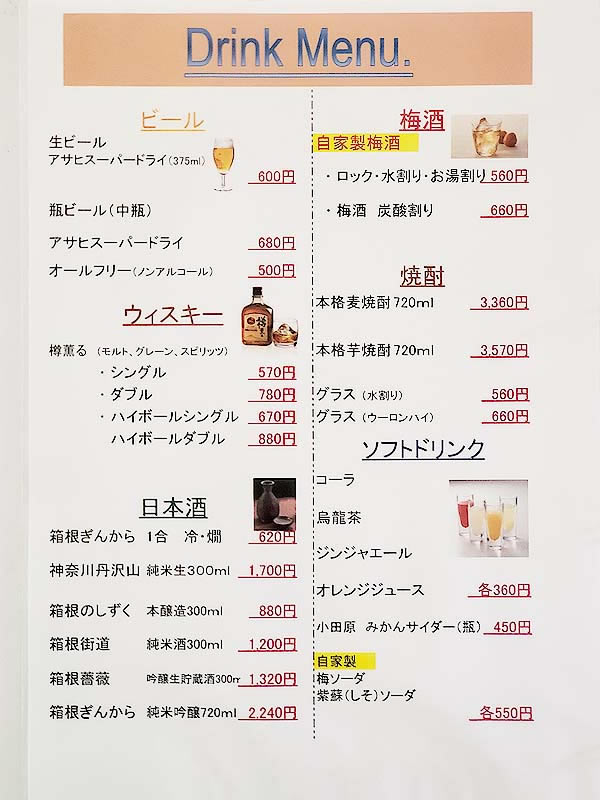 Drink Menu.
ビール
生ビール
アサヒスーパードライ（375ml）
600円
瓶ビール（中瓶）
アサヒスーパードライ 680円
オールフリー（ノンアルコール） 500円
ウィスキー
樽薫る （モルト、グレーン、スピリッツ）
・シングル 570円
・ダブル 780円
・ハイボールシングル 670円
ハイボールダブル 880円
日本酒
箱根ぎんから 1合 冷・燗 620円
神奈川丹沢山 純米生300ml 1,700円
箱根のしずく 本醸造300ml 880円
箱根街道 純米酒300ml 1,200円
箱根薔薇 吟醸生貯蔵酒300m 1,320円
箱根ぎんから 純米吟醸720ml 2,240円
梅酒
自家製梅酒
・ロック・水割り・お湯割り 560円
・梅酒 炭酸割り 660円
焼酎
本格麦焼酎720ml 3,360円
本格芋焼酎720ml 3,570円
グラス（水割り） 560円
グラス（ウーロンハイ） 660円
ソフトドリンク
コーラ
烏龍茶
ジンジャエール
オレンジジュース 各360円
小田原 みかんサイダー（瓶） 450円
自家製
梅ソーダ
紫蘇（しそ）ソーダ
各550円